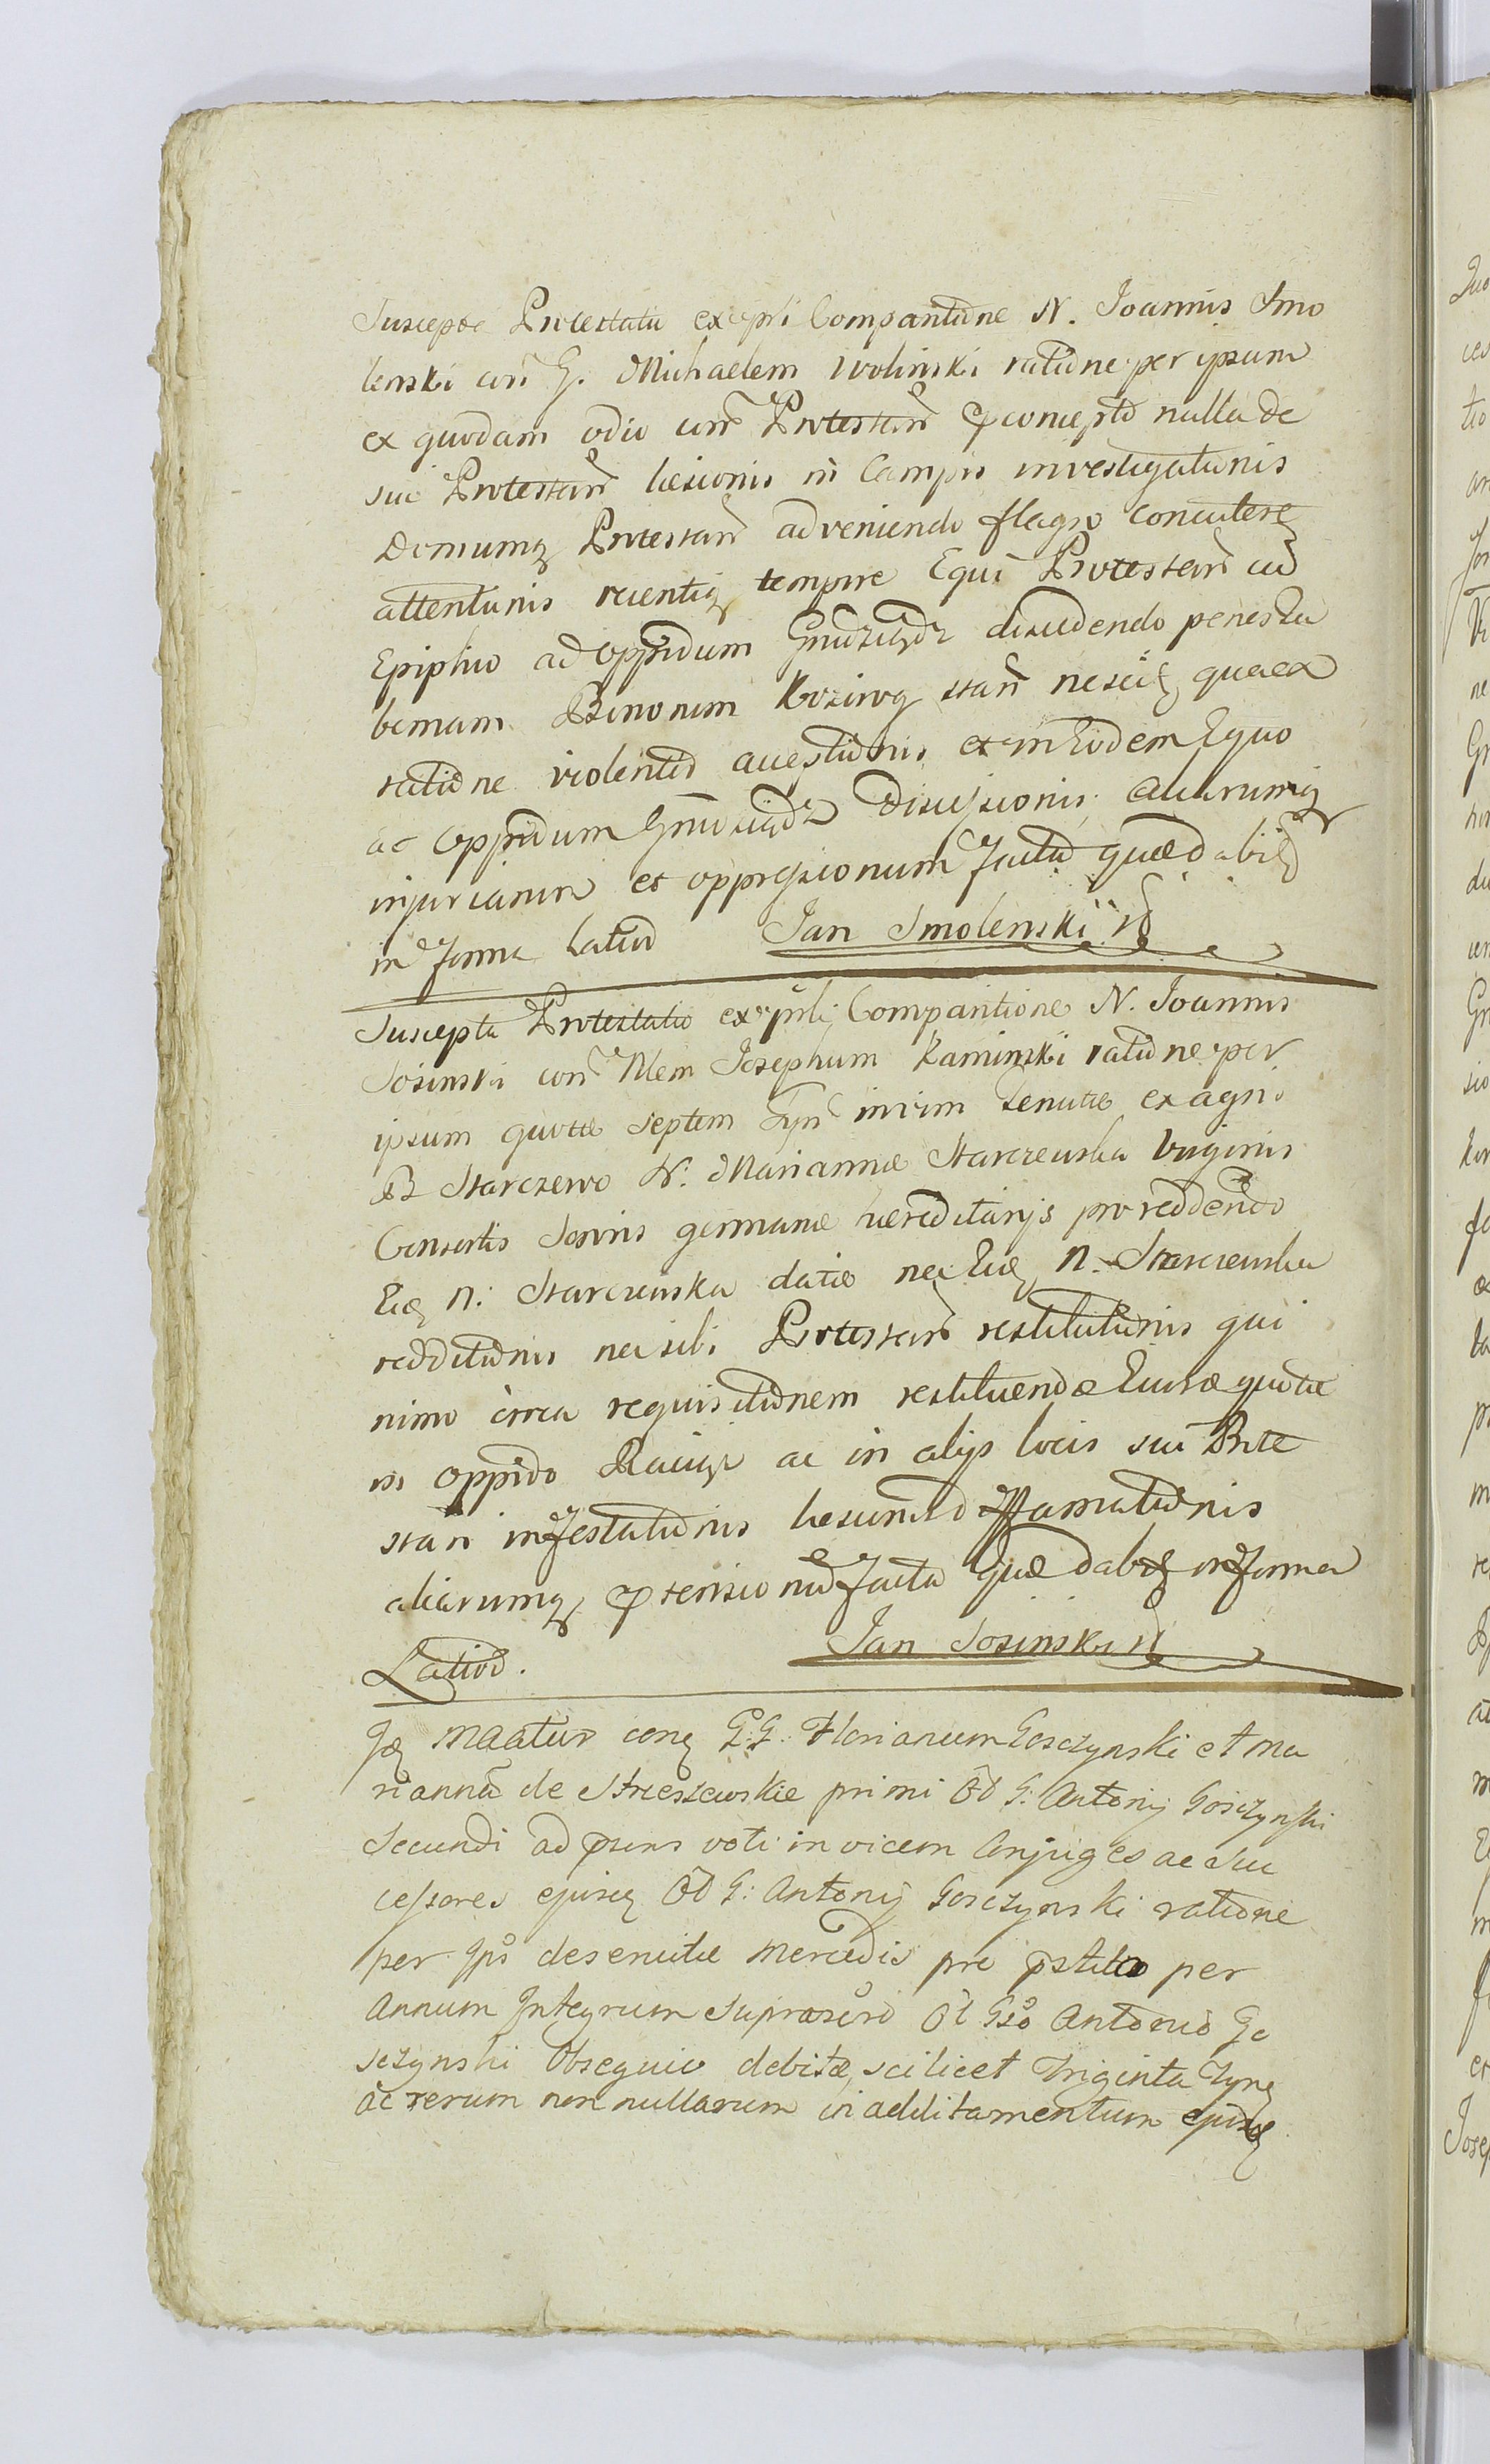 Suscepta Protestatio ex psti Comparitione N. Joannis Smo
lenski con G. Michaelem Wolinski ratione per ipsum
ex quodam odio con Protestan concepto nulla de
sui Protestan læsionis in Campis investigationis
Domumq Protestan adveniendo flagro concutere
attentionis recentiq tempore Equi Protestan cu
Ephipio ad oppidum discedendo penes ta
bernam Bonorum stan nescit qua ex
ratione violento aceptionis et in Eodem Equo
ac oppidum Discessionis aliarumq
injuriarum et oppressionum facta quæ dabit
in forma Latiori Jan Smolenski
Suscepta Protestatio ex psti Comparitione N. Joannis
Sosinski con Nlem Josephum Kaminski ratione per
ipsum quotæ septem Tyn invim tenutæ ex agris
B Starczewo N. Mariannæ Starczewska Virginis
Consortis Sororis germanæ hereditarijs pro reddendo
Eid N. Starczewska datæ nec Eid N. Starczewska
redditionis nec sibi Protestan restitutionis qui
nimo circa requisitionem restituendæ Ejusd quotæ
in oppido Raciąż ac in alijs locis sui Prote
stan infestationis læsionis diffamationis
aliarumq ptensionu facta Quæ dabit in forma
Latiori. Jan Sosinski
Idq Maatur con G.G. Florianum Gosczynski et Ma
rianna de Strzeszewskie primi Od G. Antonij Gosczynski
Secundi ad psens voti invicem Conjuges ac Suc
cessores ejusq Od G. Antonij Gosczynski ratione
per Ips deservitæ Mercedis pro pstito per
Annum Integrum Suprascri Ol Gso Antonio Go
sczynski Obsequio debitæ, scilicet Triginta Tyn
ac rerum non nullarum in additamentum ejusd